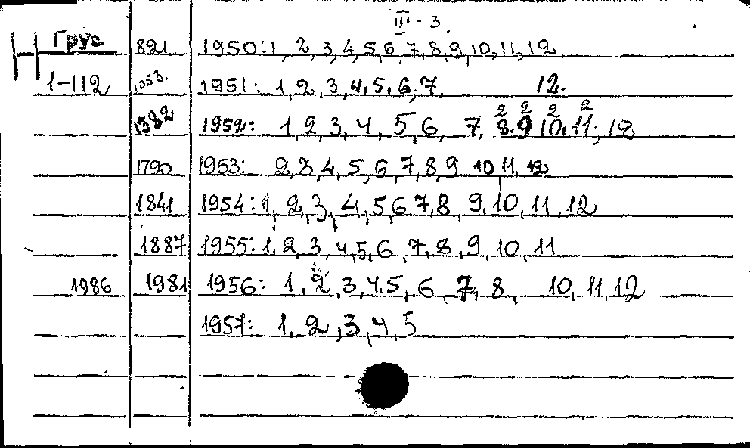 III-3.
Груз 821 1950: 1, 2, 3, 4, 5, 6, 7, 8, 9, 10, 11, 12
1-112 1053. 1951: 1, 2, 3, 4, 5, 6, 7, 12.
2 2 2 2
1382 1952: 1, 2, 3, 4, 5, 6, 7, 8, 9, 10, 11, 12
1790 1953: 2, 3, 4, 5, 6, 7, 8, 9 10, 11, 12
1841 1954: 1, 2, 3, 4, 5, 6, 7, 8, 9, 10, 11, 12
1887 1955: 1, 2, 3, 4, 5, 6, 7, 8, 9, 10, 11
1986 1981 1956: 1, 2, 3, 4, 5, 6, 7, 8, 10, 11, 12
1957: 1, 2, 3, 4, 5